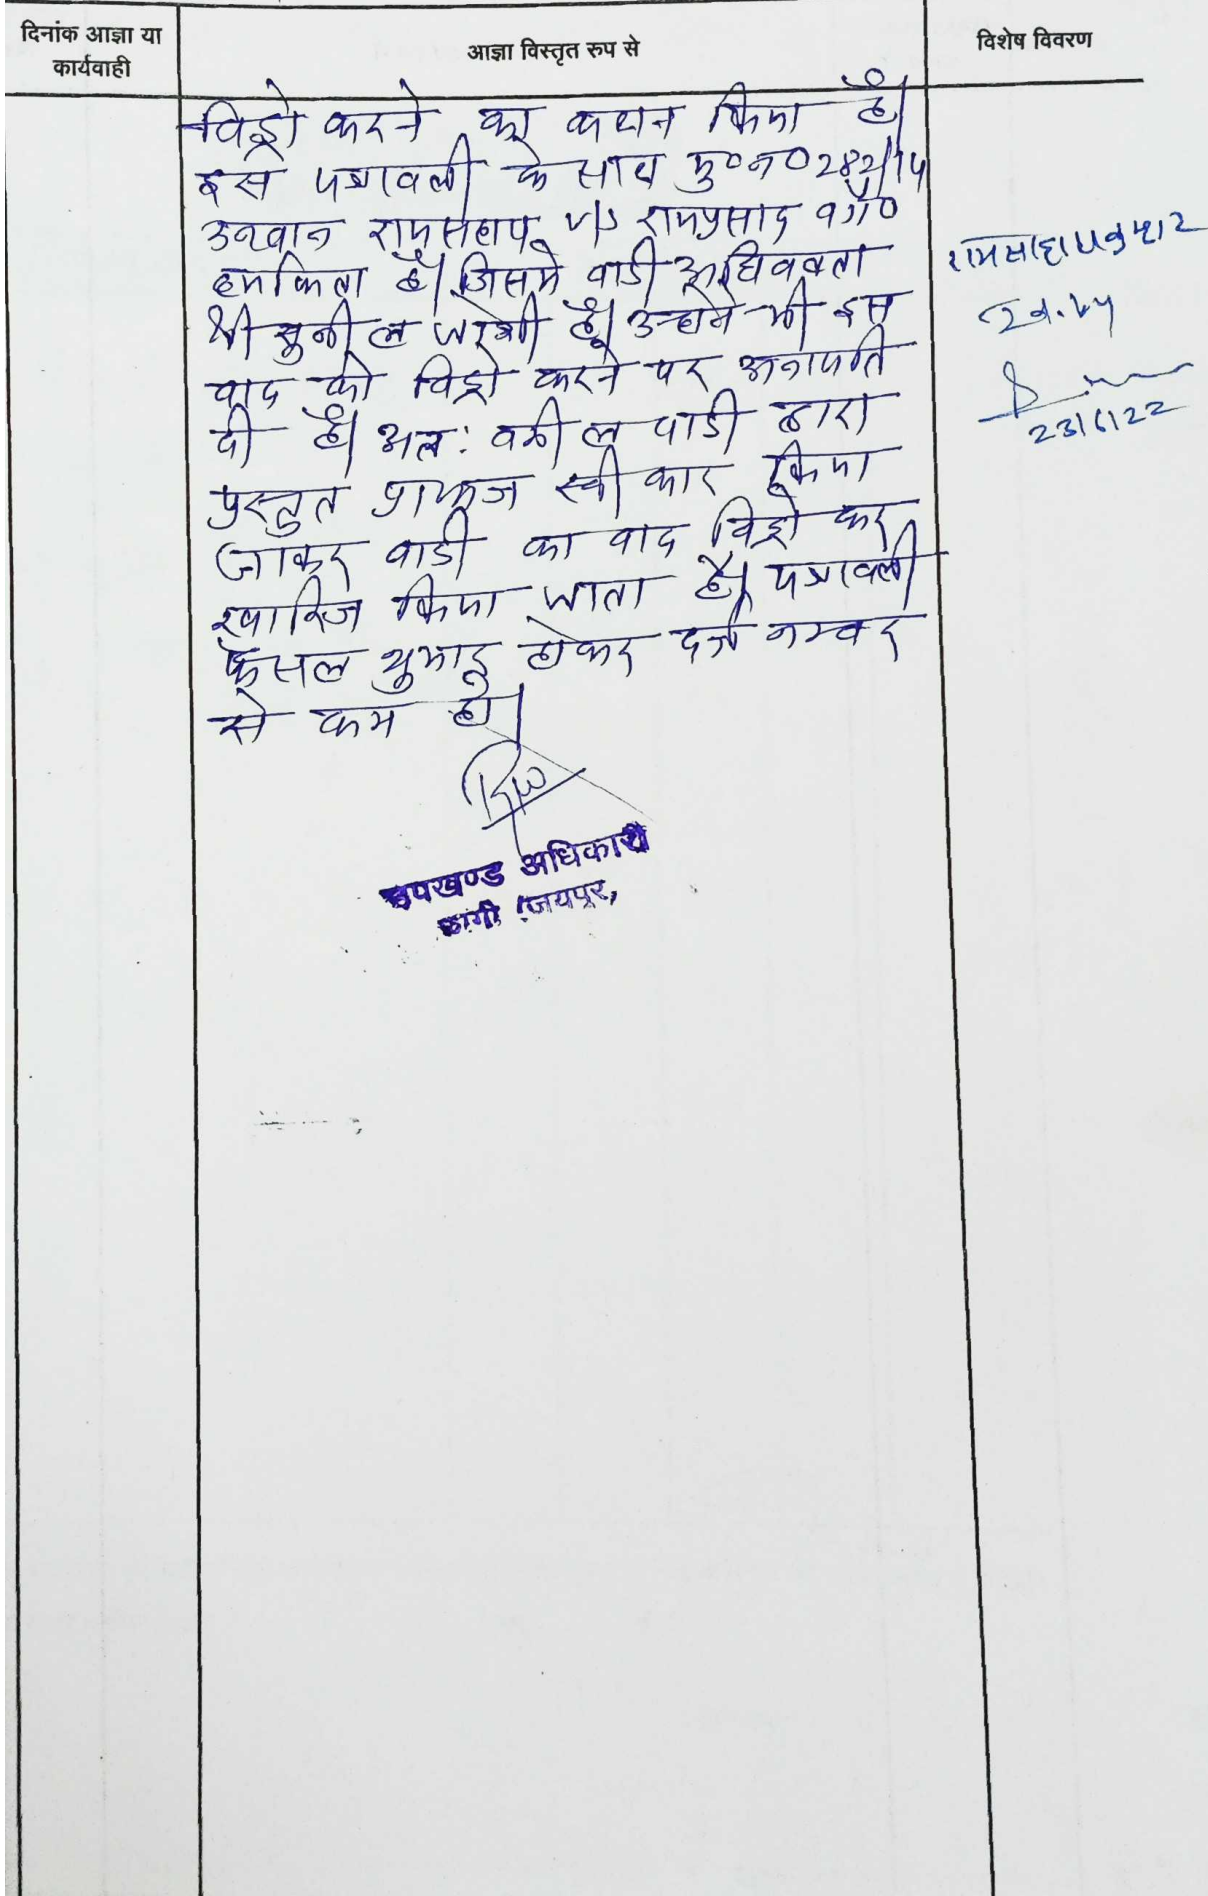 दिनांक आज्ञा या
कार्यवाही
आज्ञा विस्तृत रुप से
विशेष विवरण
विड्रो करने का कथन किया है।
इस पत्रावली के साथ मु०न० 282/14
उनवान रामसहाय v/s रामप्रसाद वगै०
हमकिता है। जिसमे वादी अधिवक्ता
श्री सुनील है। उन्होने भी इस
वाद को विड्रो करने पर अनापत्ति
दी है। अतः वकील वादी द्वारा
प्रस्तुत स्वीकार किया
जाकर वादी का वाद विड्रो कर
खारिज किया जाता है। पत्रावली
फैसल शुमार होकर दर्ज नम्बर
से कम हो।
उपखण्ड अधिकारी
फागी जयपुर,
23/6/22